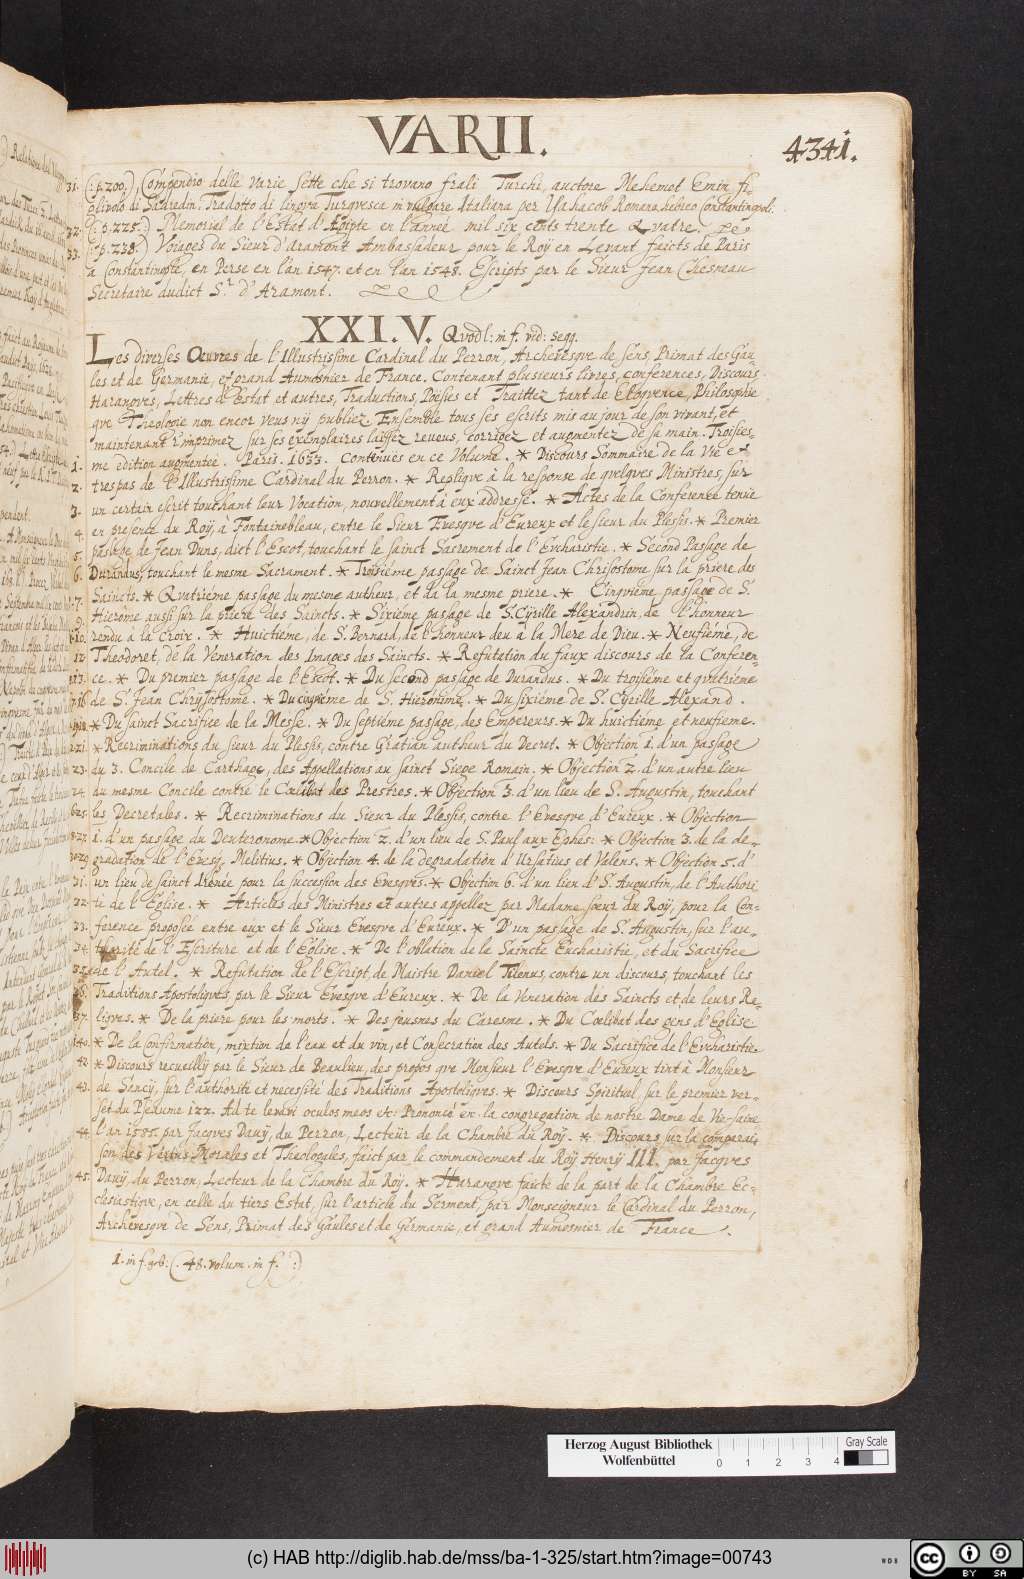 VARII.
4341.
31. (:p.200:) Compendio delle varie sette che si trovano frali Turchi, auctore Mehemet Emin fi-
gliuolo di Sadredin. Tradotto di lingua Turquesca in vulgare Italiana per Isahacob Romano hebreo Constantinopoli.
32. (:p.225:) Memorial de l'Estat d'Ægipte en l'année mil six cents trente Quatre.
33. (:p.238:) Voiages du Sieur d'Aramont Ambassadeur pour le Roÿ en Levant faicts de Paris
a Constantinople, en Perse en l'an 1547. et en l'an 1548. Escripts par le Sieur Jean Chesneau
Secretaire dudict S.r d'Aramont.
XXI.V. Quodl: in f. vid: seqq.
Les diverses Oeuvres de l'Illustrissime Cardinal du Perron, Archevesque de Sens, Primat des Gau-
les et de Germanie, et grand Aumosnier de France. Contenant plusieurs livres, conferences, Discours
Harangves, Lettres d'Estat et autres, Traductions, Poësies et Traittez tant de Eloqvence, Philosophie
qve Theologie non encor veus nÿ publiez. Ensemble tous ses escrits mis au jour de son vivant, et
maintenant r'imprimez sur ses exemplaires laissez reveus, corrigez et augmentez de sa main. Troisies-
1. me edition augmenteé. Paris. 1633. Contenues en ce Volume. * Discours Sommaire de la Vie et
2. trespas de l'Illustrissime Cardinal du Perron. * Repliqve à la response de qvelqves Ministres, sur
3. un certain escrit touchant leur Vocation, nouvellement à eux addressé. * Actes de la Conference tenue
4. en presence du Roÿ, à Fontainebleau, entre le Sieur Evesqve d'Eureux et le sieur du Plessis * Premier
5. passage de Jean Duns, dict l'Escot, touchant le sainct Sacrement de l'Eucharistie. * Second Passage de
6. Durandus, touchant le mesme Sacrament. * Troisiéme passage de Sainct Jean Chrisostome sur la priere des
7. Saincts. * Qvatriéme passage du mesme autheur, et de la mesme priere. * Cinqviéme passage de S.
9. Hierôme aussi sur la priere des Saincts. * Sixiéme passage de S. Cÿrille Alexandrin, de l'honneur
10. rendu à la Croix. * Huictiéme, de S. Bernard, de l'honneur deu à la Mere de Dieu. * Neufiéme, de
12. Theodoret, de la Veneration des Images des Saincts. * Refutation du faux discours de la Conferen-
13. ce. * Du premier passage de l'Escot. * Du second passage de Durandus. * Du troisiéme et qvatriéme
16. de S. Jean Chrÿsostome. * Du cinqviéme de S. Hieronime. * Du sixiéme de S. Cÿrille Alexand.
* Du sainct Sacrifice de la Messe. * Du septiéme passage, des Empereurs. * Du huictiéme et neufieme.
21. * Recriminations du sieur du Plessis, contre Gratian autheur du Decret. * Objection 1. d'un passage
23. du 3. Concile de Carthage, des Appellations au sainct Siege Romain. * Objection 2. d'un autre lieu
24. du mesme Concile contre le Coelibat des Prestres. * Objection 3. d'un lieu de S. Augustin, touchant
25. les Decretales. * Recriminations du Sieur du Plessis, contre l'Evesqve d'Eureux. * Objection
27. 1. d'un passage du Deuteronome. * Objection 2. d'un lieu de S. Paul aux Ephes: * Objection 3. de la de-
29. gradation de l'Evesq. Melitius. * Objection 4. de la degradation d'Ursatius et Valens. * Objection 5. d'
31. un lieu de sainct Irénée pour la succession des Evesqves. * Objection 6. d'un lieu d'S. Augustin, de l'Authori-
32. té de l'Eglise. * Articles des Ministres et autres appellez par Madame soeur du Roÿ, pour la Con-
33. ference proposée entre eux et le Sieur Evesqve d'Eureux. * D'un passage de S. Augustin, sur l'au-
34. thorité de l'Escriture et de l'Eglise. * De l'Oblation de la Saincte Eucharistie, et du Sacrifice
35. de l'Autel. * Refutation de l'Escript de Maistre Daniel Tilenus, contre un discours, touchant les
36. Traditions Apostoliqves, par le Sieur Evesqve d'Eureux. * De la Veneration des Saincts et de leurs Re-
37. liqves. * De la priere pour les morts. * Des jeusnes du Caresme. * Du Coelibat des gens d'Eglise
40. * De la confirmation, mixtion de l'eau et du vin, et Consecration des Autels. * Du Sacrifice de l'Eucharistie
42. * Discours recueilly par le Sieur de Beaulieu, des propos qve Monsieur l'Evesqve d'Eureux tint à Monsieur
43. de Sancÿ, sur l'authorité et necessité des Traditions Apostoliqves. * Discours Spirituel, sur le premier ver-
set du Pseaume 122. Ad te levavi oculos meos &c. Prononcé en la congregation de nostre Dame de Vie-saine
44. l'an 1585. par Jacqves Davÿ, du Perron, Lecteur de la Chambre du Roÿ. * Discours sur la comparai-
son des Vertus Morales et Theologales, faict par le commandement du Roÿ Henrÿ III. par Jacqves
45. Davÿ du Perron, Lecteur de la Chambre du Roÿ. * Harangve faicte de la part de la Chambre Ec-
clesiastiqve, en celle du tiers Estat, sur l'article du Serment, par Monseigneur le Cardinal du Perron,
Archevesqve de Sens, Primat des Gaules et de Germanie, et grand Aumosnier de France.
1. in f. grb: (. 48. volum. in f. :)
Herzog August Bibliothek
Wolfenbüttel
0 1 2 3 4
Gray Scale
(c) HAB http://diglib.hab.de/mss/ba-1-325/start.htm?image=00743
WDB
cc BY SA